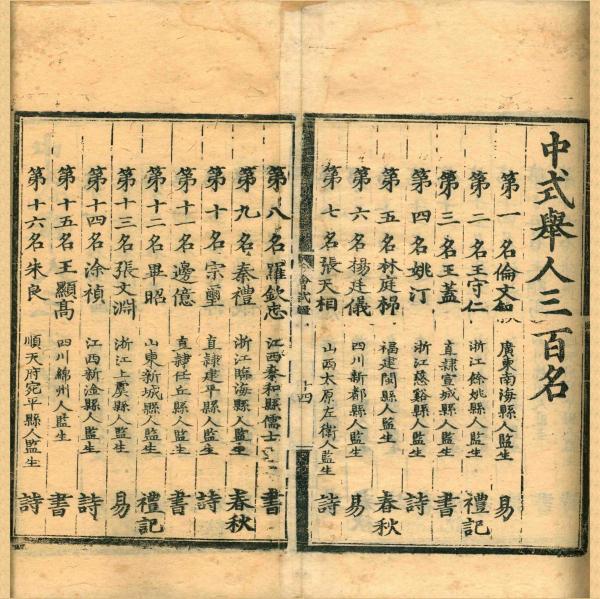 中式舉人三百名
第一名倫文敘 廣東南海縣人監生 易
第二名王守仁 浙江餘姚縣人監生 禮記
第三名王蓋 直隸宣城縣人監生 書
第四名姚汀 浙江慈谿縣人監生 詩
第五名林庭㭿 福建閩縣人監生 春秋
第六名楊廷儀 四川新都縣人監生 易
第七名張天相 山西太原左衛人監生 詩
會試錄
十四
第八名羅欽忠 江西泰和縣儒士 書
第九名秦禮 浙江臨海縣人監生 春秋
第十名宗璽 直隸建平縣人監生 詩
第十一名邊億 直隸任丘縣人監生 書
第十二名畢昭 山東新城縣人監生 禮記
第十三名張文淵 浙江上虞縣人監生 易
第十四名涂禎 江西新淦縣人監生 詩
第十五名王顯高 四川綿州人監生 書
第十六名朱良 順天府宛平縣人監生 詩